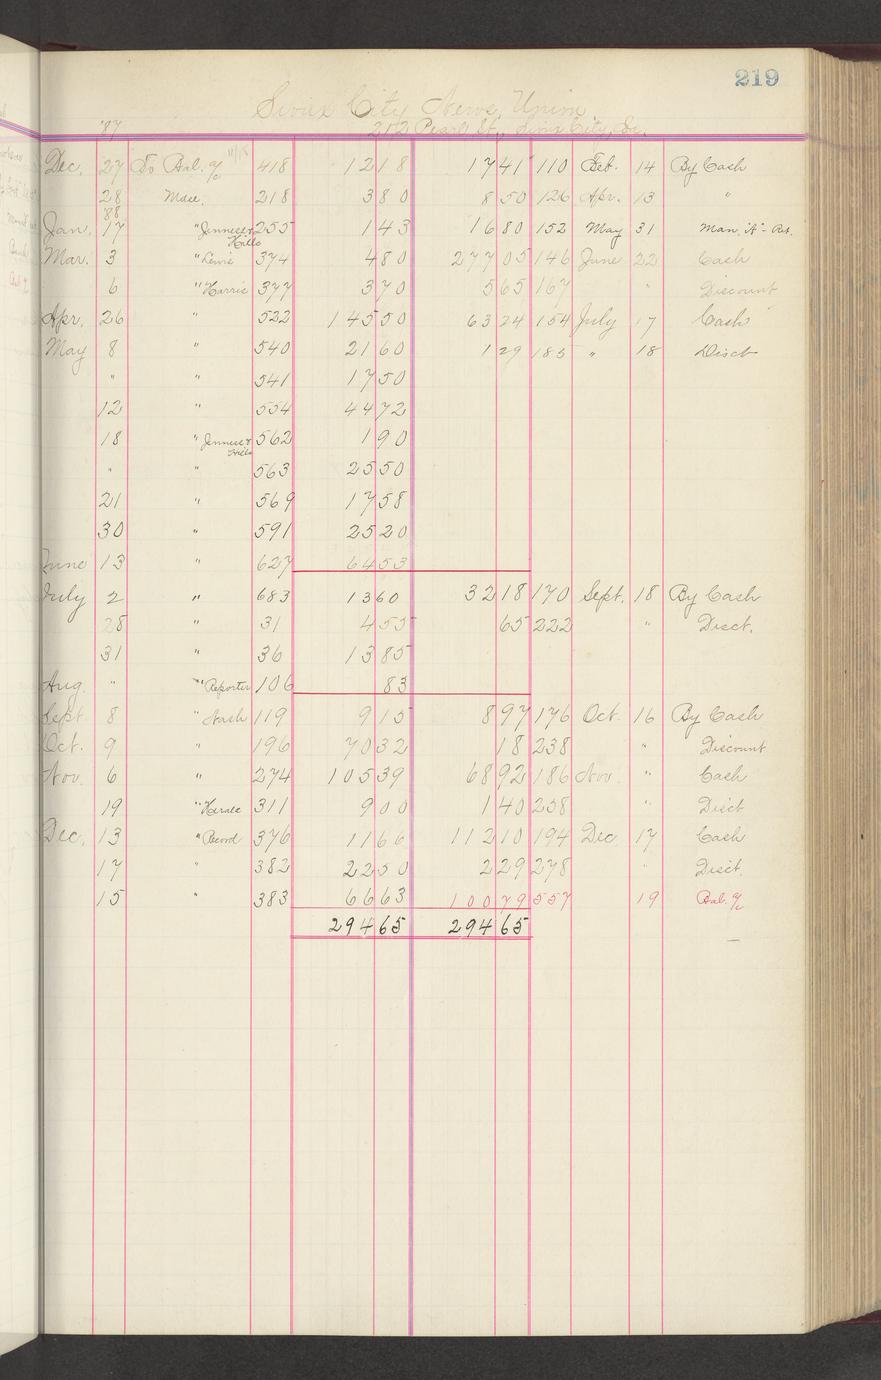 219
Sioux City News Union
'87 212 Pearl St., Sioux City, Ia.
Dec. 27 To Bal. a/c 418 12 18 17 41 110 Feb. 14 By Cash
28 Mdse. 218 3 80 8 50 126 Apr. 13 "
'88
Jan. 17 " Jenness & Hills 255 1 43 16 80 152 May 31 Man. "A" - Ret.
Mar. 3 " Lewis 374 4 80 277 05 146 June 22 Cash
6 " Harris 377 3 70 5 65 167 " Discount
Apr. 26 " 522 145 50 63 24 154 July 17 Cash
May 8 " 540 21 60 1 29 185 " 18 Disct
" " 541 17 50
12 " 554 44 72
18 " Jenness & Hills 562 1 90
" " 563 25 50
21 " 569 17 58
30 " 591 25 20
June 13 " 627 64 53
July 2 " 683 13 60 32 18 170 Sept. 18 By Cash
28 " 31 4 55 65 222 " Disct.
31 " 36 13 85
Aug. " " Reporter 106 83
Sept. 8 " Nash 119 9 15 8 97 176 Oct. 16 By Cash
Oct. 9 " 196 70 32 18 238 " Discount
Nov. 6 " 274 105 39 68 92 186 Nov. " Cash
19 " Herald 311 9 00 1 40 258 " Disct
Dec. 13 " Record 376 11 66 112 10 194 Dec 17 Cash
17 " 382 22 50 2 29 278 " Disct.
15 " 383 66 63 100 79 557 19 Bal. a/c
294 65 294 65